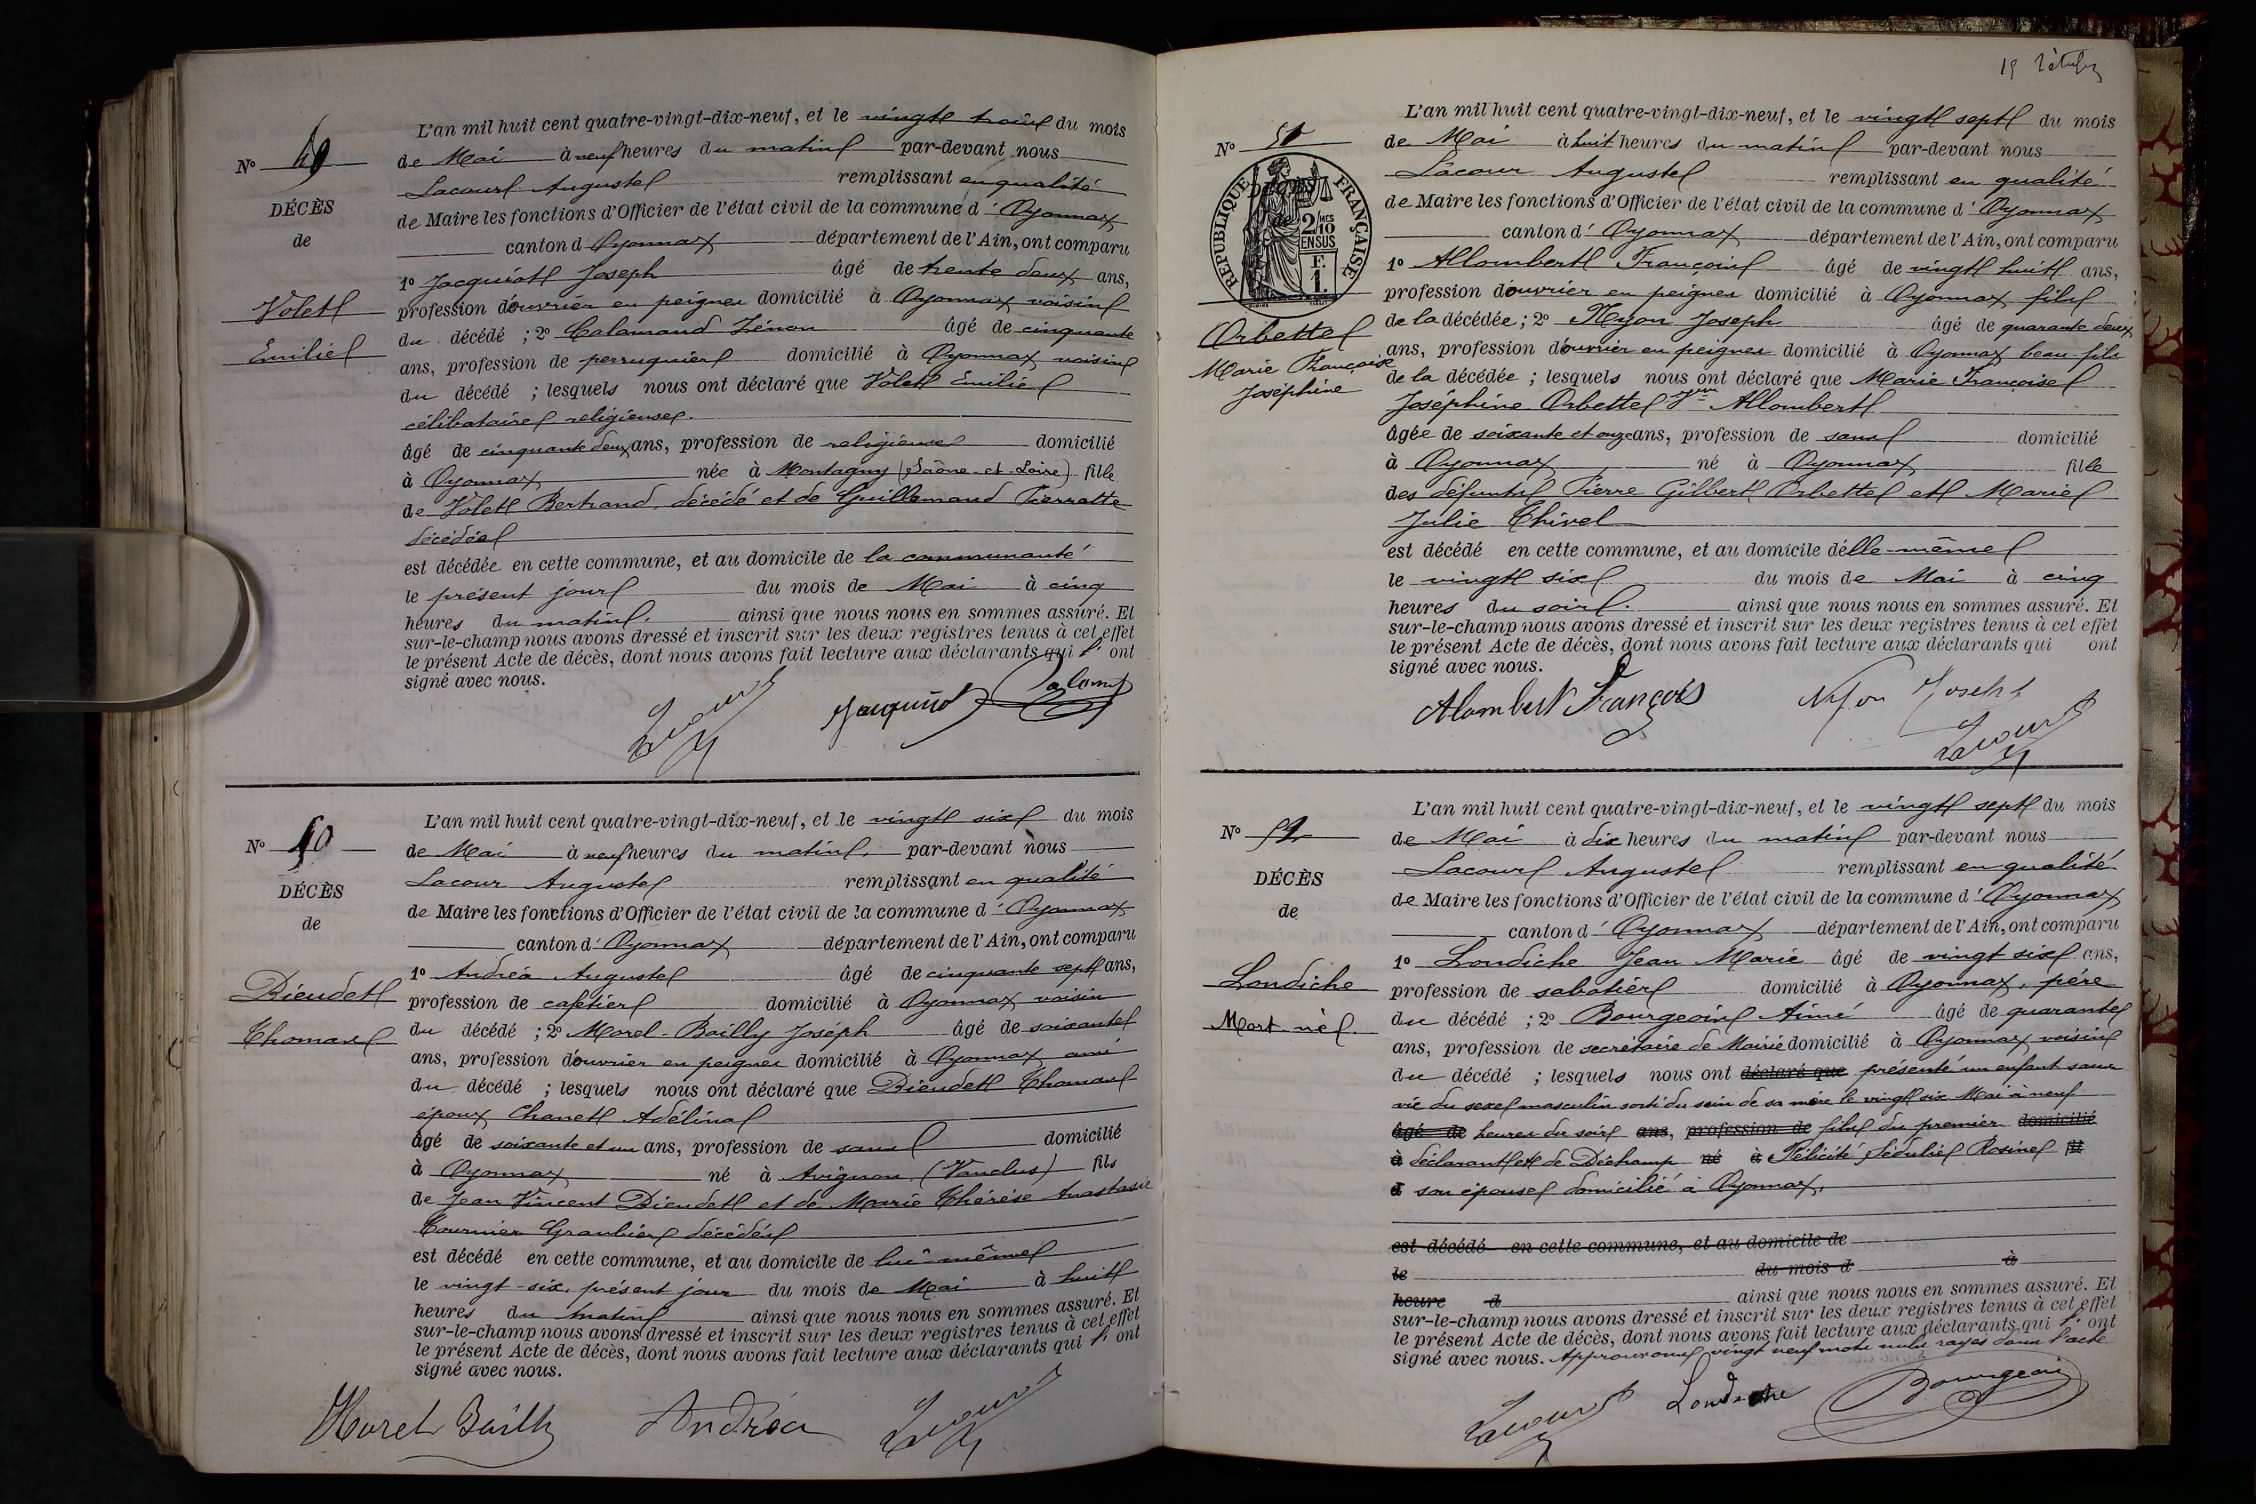 N° 49
DÉCÈS
de
Volet
Emilie
L'an mil huit cent quatre-vingt-dix-neuf, et le vingt trois du mois
de Mai à neuf heures du matin par-devant nous
Lacour Auguste remplissant en qualité
de Maire les fonctions d'Officier de l'état civil de la commune d'Oyonnax
canton d'Oyonnax département de l'Ain, ont comparu
1° Jacquiot Joseph âgé de trente deux ans,
profession d'ouvrier en peignes domicilié à Oyonnax voisin
du décédé ; 2° Calamand Zénon âgé de cinquante
ans, profession de perruquier domicilié à Oyonnax voisin
du décédé ; lesquels nous ont déclaré que Volet Emilie
célibataire religieuse.
âgé de cinquante deux ans, profession de religieuse domicilié
à Oyonnax née à Montagny (Saône-et-Loire) fille
de Volet Bertrand décédé et de Guillemaud Pierrette
décédée
est décédée en cette commune, et au domicile de la communauté
le présent jour du mois de Mai à cinq
heures du matin. ainsi que nous nous en sommes assuré. Et
sur-le-champ nous avons dressé et inscrit sur les deux registres tenus à cet effet
le présent Acte de décès, dont nous avons fait lecture aux déclarants qui l'ont
signé avec nous.
Lacour Jacquiot Calamand
N° 50
DÉCÈS
de
Dieudet
Thomas
L'an mil huit cent quatre-vingt-dix-neuf, et le vingt six du mois
de Mai à neuf heures du matin. par-devant nous
Lacour Auguste remplissant en qualité
de Maire les fonctions d'Officier de l'état civil de la commune d'Oyonnax
canton d'Oyonnax département de l'Ain, ont comparu
1° Andréa Auguste âgé de cinquante sept ans,
profession de cafetier domicilié à Oyonnax voisin
du décédé ; 2° Morel-Bailly Joseph âgé de soixante
ans, profession d'ouvrier en peignes domicilié à Oyonnax ami
du décédé ; lesquels nous ont déclaré que Dieudet Thomas
époux Chanet Adélina
âgé de soixante et un ans, profession de sans domicilié
à Oyonnax né à Avignon (Vauclus) fils
de Jean Vincent Dieudet et de Marie Thérèse Anastasie
Tournier Graubier décédés
est décédé en cette commune, et au domicile de lui-même
le vingt-six, présent jour du mois de Mai à huit
heures du matin ainsi que nous nous en sommes assuré. Et
sur-le-champ nous avons dressé et inscrit sur les deux registres tenus à cet effet
le présent Acte de décès, dont nous avons fait lecture aux déclarants qui l'ont
signé avec nous.
Morel Bailly Andréa Lacour
N° 51
RÉPUBLIQUE FRANÇAISE
2/10 MES
EN SUS
F.
1.
Orbette
Marie Françoise
Joséphine
L'an mil huit cent quatre-vingt-dix-neuf, et le vingt sept du mois
de Mai à huit heures du matin par-devant nous
Lacour Auguste remplissant en qualité
de Maire les fonctions d'Officier de l'état civil de la commune d'Oyonnax
canton d'Oyonnax département de l'Ain, ont comparu
1° Allombert François âgé de vingt huit ans,
profession d'ouvrier en peignes domicilié à Oyonnax fils
de la décédée ; 2° Nyon Joseph âgé de quarante deux
ans, profession d'ouvrier en peignes domicilié à Oyonnax beau-fils
de la décédée ; lesquels nous ont déclaré que Marie Françoise
Joséphine Orbette Vve Allombert
âgée de soixante et onze ans, profession de sans domicilié
à Oyonnax né à Oyonnax fille
des défunts Pierre Gilbert Orbette et Marie
Julie Thivel
est décédé en cette commune, et au domicile d'elle-même
le vingt six du mois de Mai à cinq
heures du soir. ainsi que nous nous en sommes assuré. Et
sur-le-champ nous avons dressé et inscrit sur les deux registres tenus à cet effet
le présent Acte de décès, dont nous avons fait lecture aux déclarants qui ont
signé avec nous.
Alombert François Nyon Joseph
Lacour
N° 52
DÉCÈS
de
Londiche
Mort né.
L'an mil huit cent quatre-vingt-dix-neuf, et le vingt sept du mois
de Mai à dix heures du matin par-devant nous
Lacour Auguste remplissant en qualité
de Maire les fonctions d'Officier de l'état civil de la commune d'Oyonnax
canton d'Oyonnax département de l'Ain, ont comparu
1° Londiche Jean Marie âgé de vingt six ans,
profession de sabotier domicilié à Oyonnax, père
du décédé ; 2° Bourgeois Aimé âgé de quarante
ans, profession de secrétaire de Mairie domicilié à Oyonnax voisin
du décédé ; lesquels nous ont déclaré que présenté un enfant sans
vie du sexe masculin sorti du sein de sa mère le vingt six Mai à neuf
âgé de heures du soir ans, profession de fils du premier domicilié
à déclarant et de Déchamp né à Félicité Sédulie Rosine fil
d son épouse domicilié à Oyonnax.
est décédé en cette commune, et au domicile de
le du mois d à
heure d ainsi que nous nous en sommes assuré. Et
sur-le-champ nous avons dressé et inscrit sur les deux registres tenus à cet effet
le présent Acte de décès, dont nous avons fait lecture aux déclarants qui l'ont
signé avec nous. Approuvons vingt neuf mots nuls rayés dans l'acte
Lacour Londiche Bourgeois